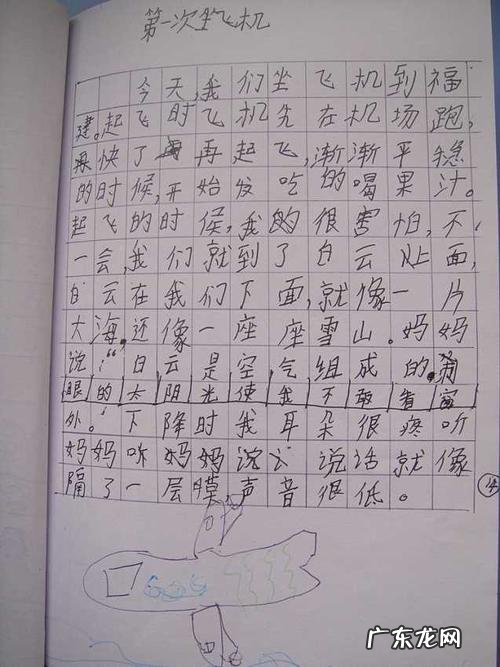 第一次坐飞机
今天,我们坐飞机到福
建。起飞时飞机先在机场跑,
快了再起飞,渐渐平稳
的时候,开始发吃的喝果汁。
起飞的时侯,我的很害怕,不
一会,我们就到了白云上面,
白云在我们下面,就像一片
大海,还像一座座雪山。妈妈
说:“白云是空气组成的。
眼的太阳光使我不敢看窗
外。下降时我耳朵很疼听
妈妈听妈妈说 说话就像
隔了一层膜,声音很低。
广东龙网